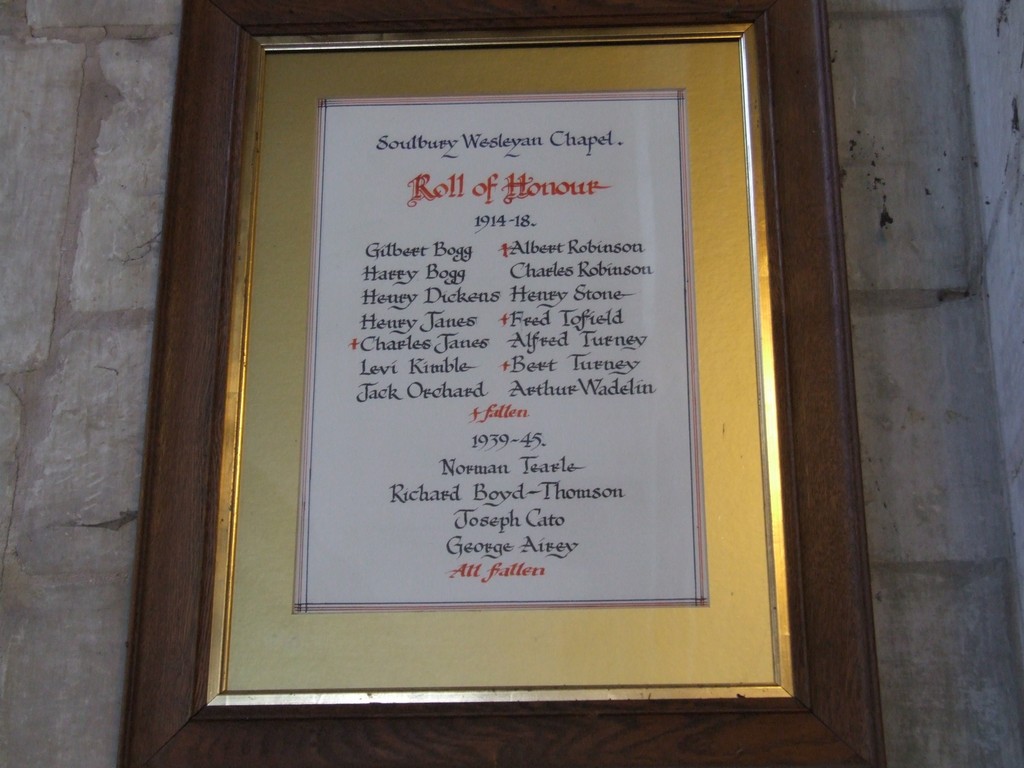 Soulbury Wesleyan Chapel.
Roll of Honour
1914-18.
Gilbert Bogg †Albert Robinson
Harry Bogg Charles Robinson
Henry Dickens Henry Stone
Henry Janes †Fred Tofield
†Charles Janes Alfred Turney
Levi Kimble †Bert Turney
Jack Orchard Arthur Wadelin
† fallen
1939-45.
Norman Tearle
Richard Boyd-Thomson
Joseph Cato
George Airey
All fallen